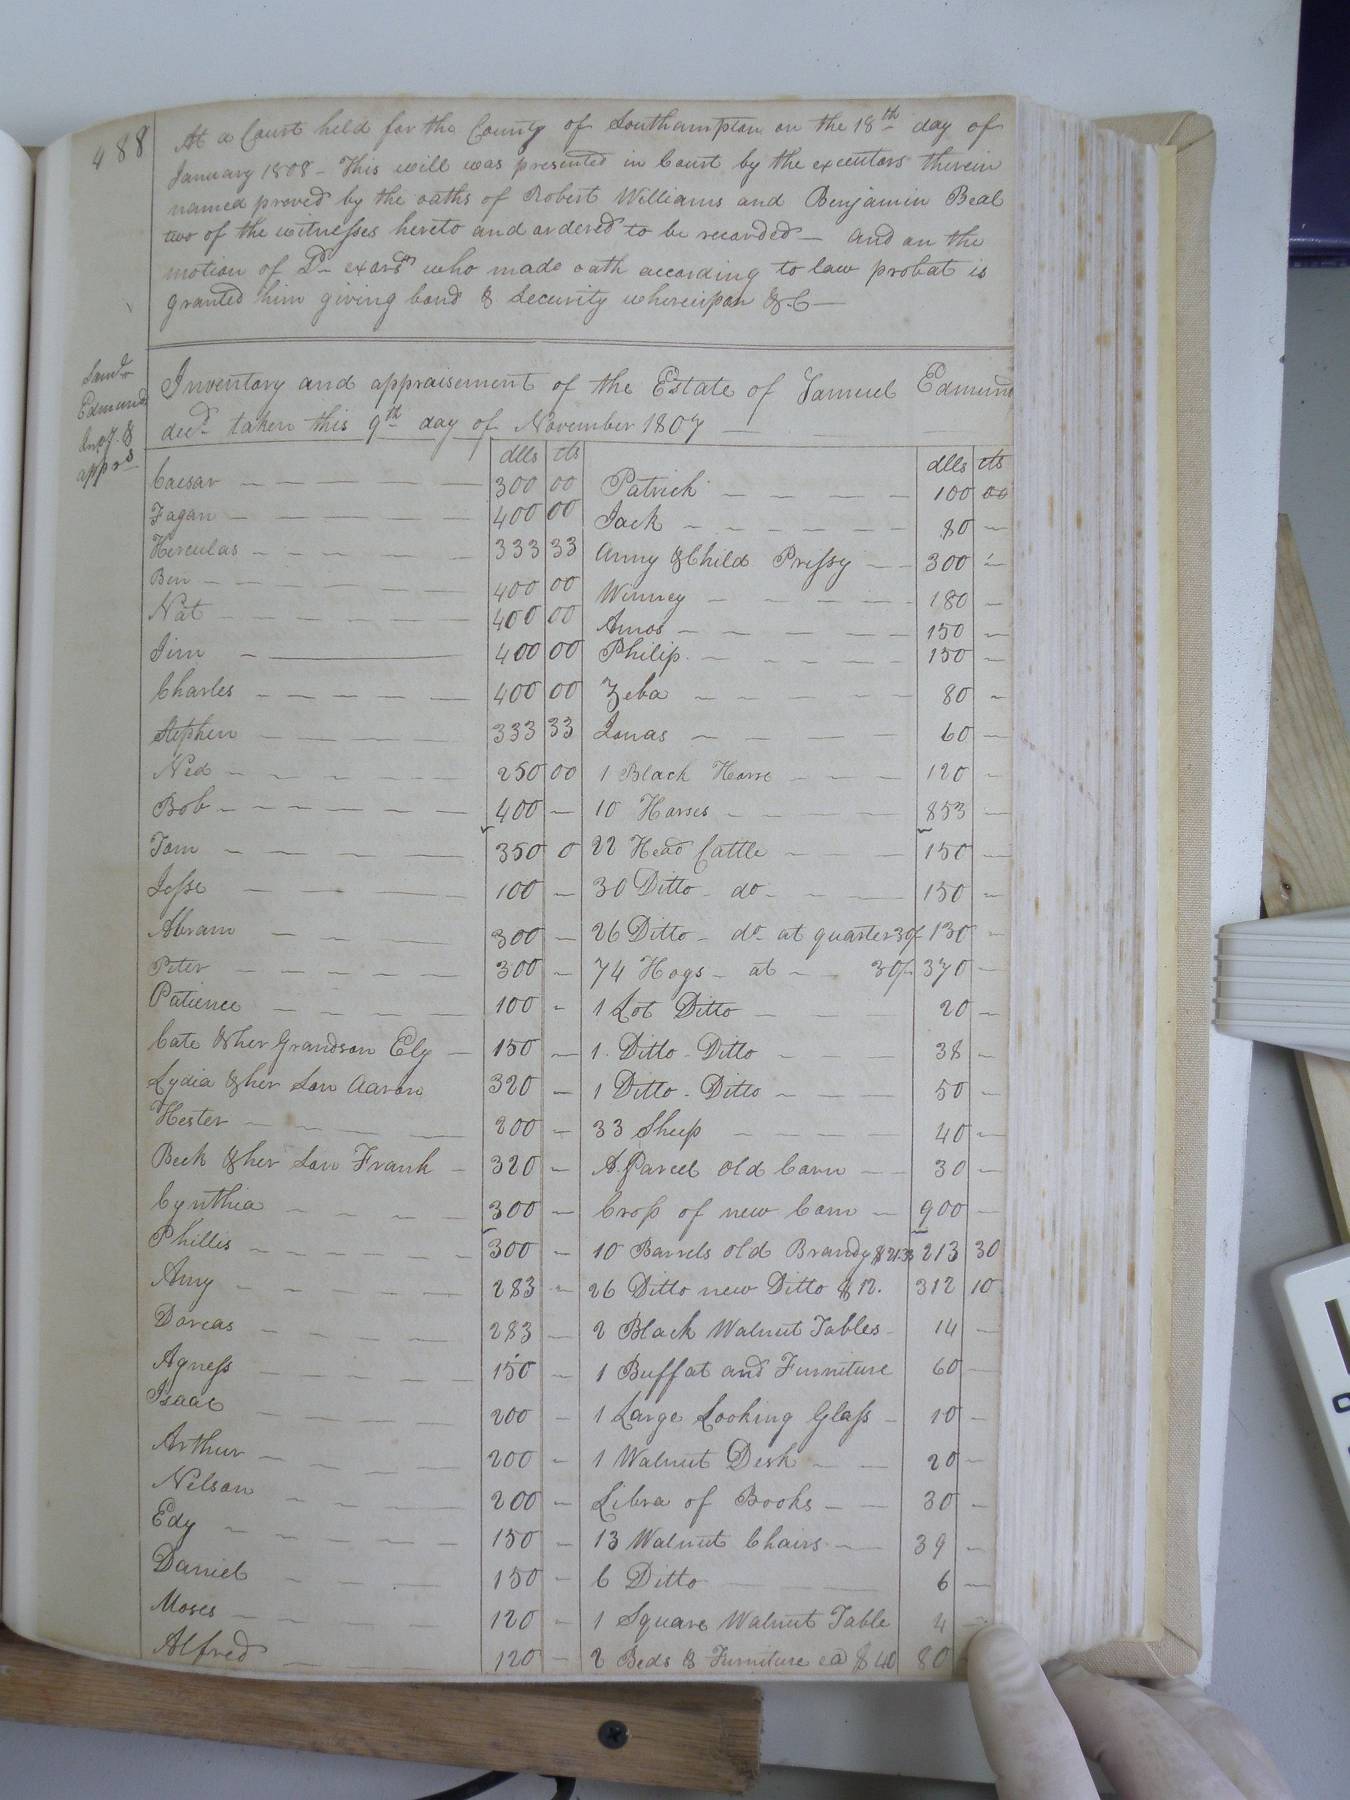 488
At a Court held for the County of Southampton on the 18th day of
January 1808 - This will was presented in Court by the executors therein
named proved by the oaths of Robert Williams and Benjamin Beal
two of the witnesses hereto and ordered to be recorded - and on the
motion of Sd exors who made oath according to law probat is
granted him giving bond & Security whereupon &.C -
Saml
Edmunds
Invy &
apprs
Inventory and appraisement of the Estate of Samuel Edmund
decd taken this 9th day of November 1807
dlls cts dlls cts
Caesar 300 00 Patrick 100 00
Fagan 400 00 Jack 80
Herculas 333 33 Anny & Child Prissy 300
Ben 400 00 Winney 180
Nat 400 00 Amos 150
Jim 400 00 Philip 150
Charles 400 00 Zeba 80
Stephen 333 33 Jonas 60
Ned 250 00 1 Black Horse 120
Bob 400 - 10 Horses 853
Tom 350 0 22 Head Cattle 150
Jesse 100 - 30 Ditto - do 150
Abram 300 - 26 Ditto - do at quarter 30/ 130
Peter 300 - 74 Hogs - at - 30/ 370
Patience 100 - 1 Lot Ditto 20
Cate & her Grandson Ely - 150 - 1 Ditto - Ditto 38
Lydia & her Son Aaron 320 - 1 Ditto - Ditto 50
Hester 200 - 33 Sheep 40
Beck & her Son Frank - 320 - A Parcel old Corn 30
Cynthia 300 - Crop of new Corn 900
Phillis 300 - 10 Barrels old Brandy $21.33 213 30
Amy 283 - 26 Ditto new Ditto $12. 312 10
Dorcas 283 - 2 Black Walnut Tables 14
Agness 150 - 1 Buffat and Furniture 60
Isaac 200 - 1 Large Looking Glass - 10
Arthur 200 - 1 Walnut Desk 20
Nelson 200 - Libra of Books 30
Edy 150 - 13 Walnut Chairs 39
Daniel 150 - 6 Ditto 6
Moses 120 - 1 Square Walnut Table 4
Alfred 120 - 2 Beds & Furniture ea $40 80